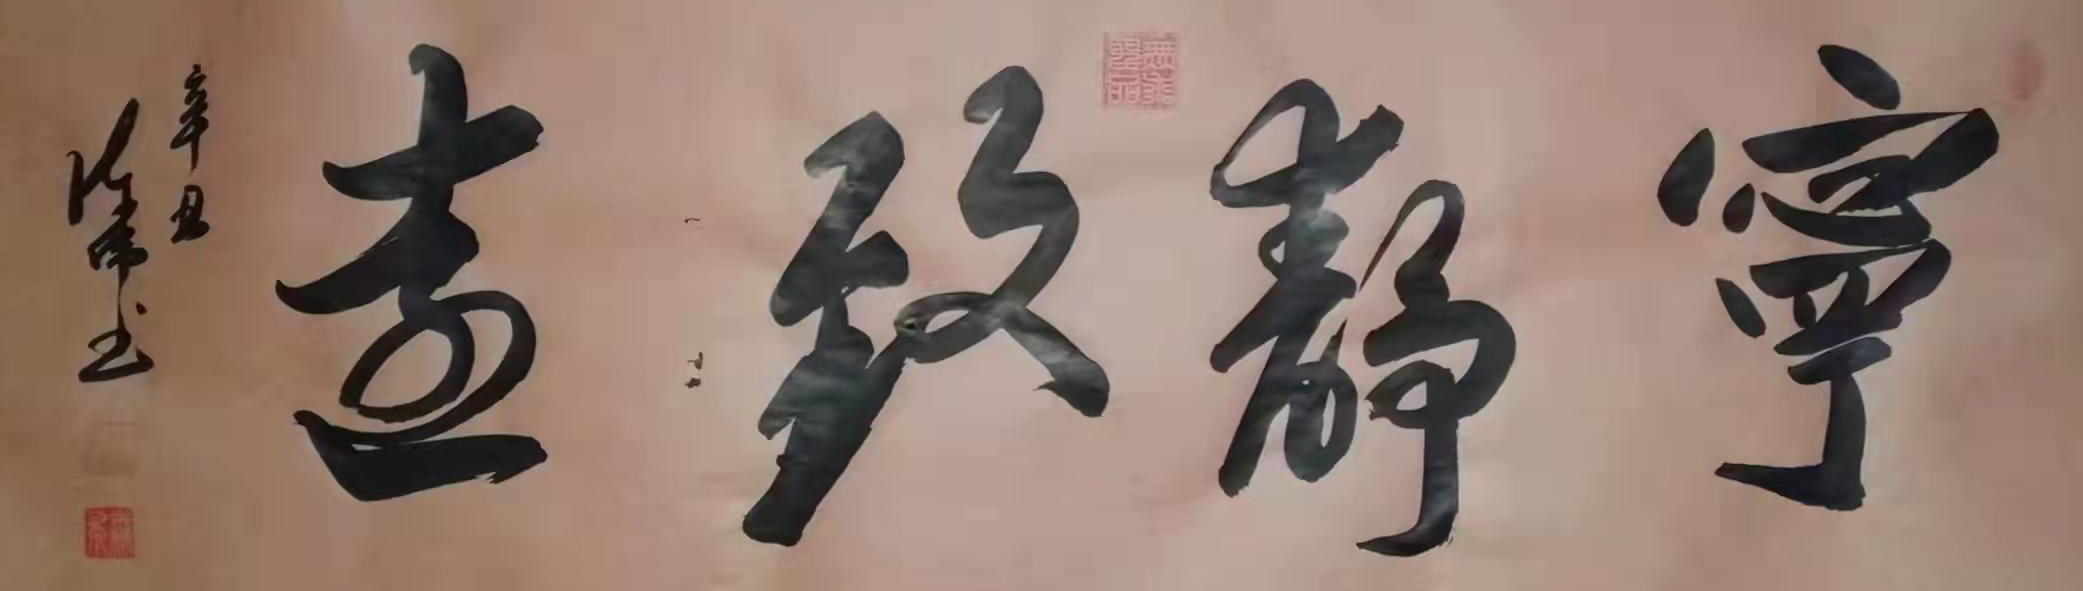 寧靜致遠
辛丑